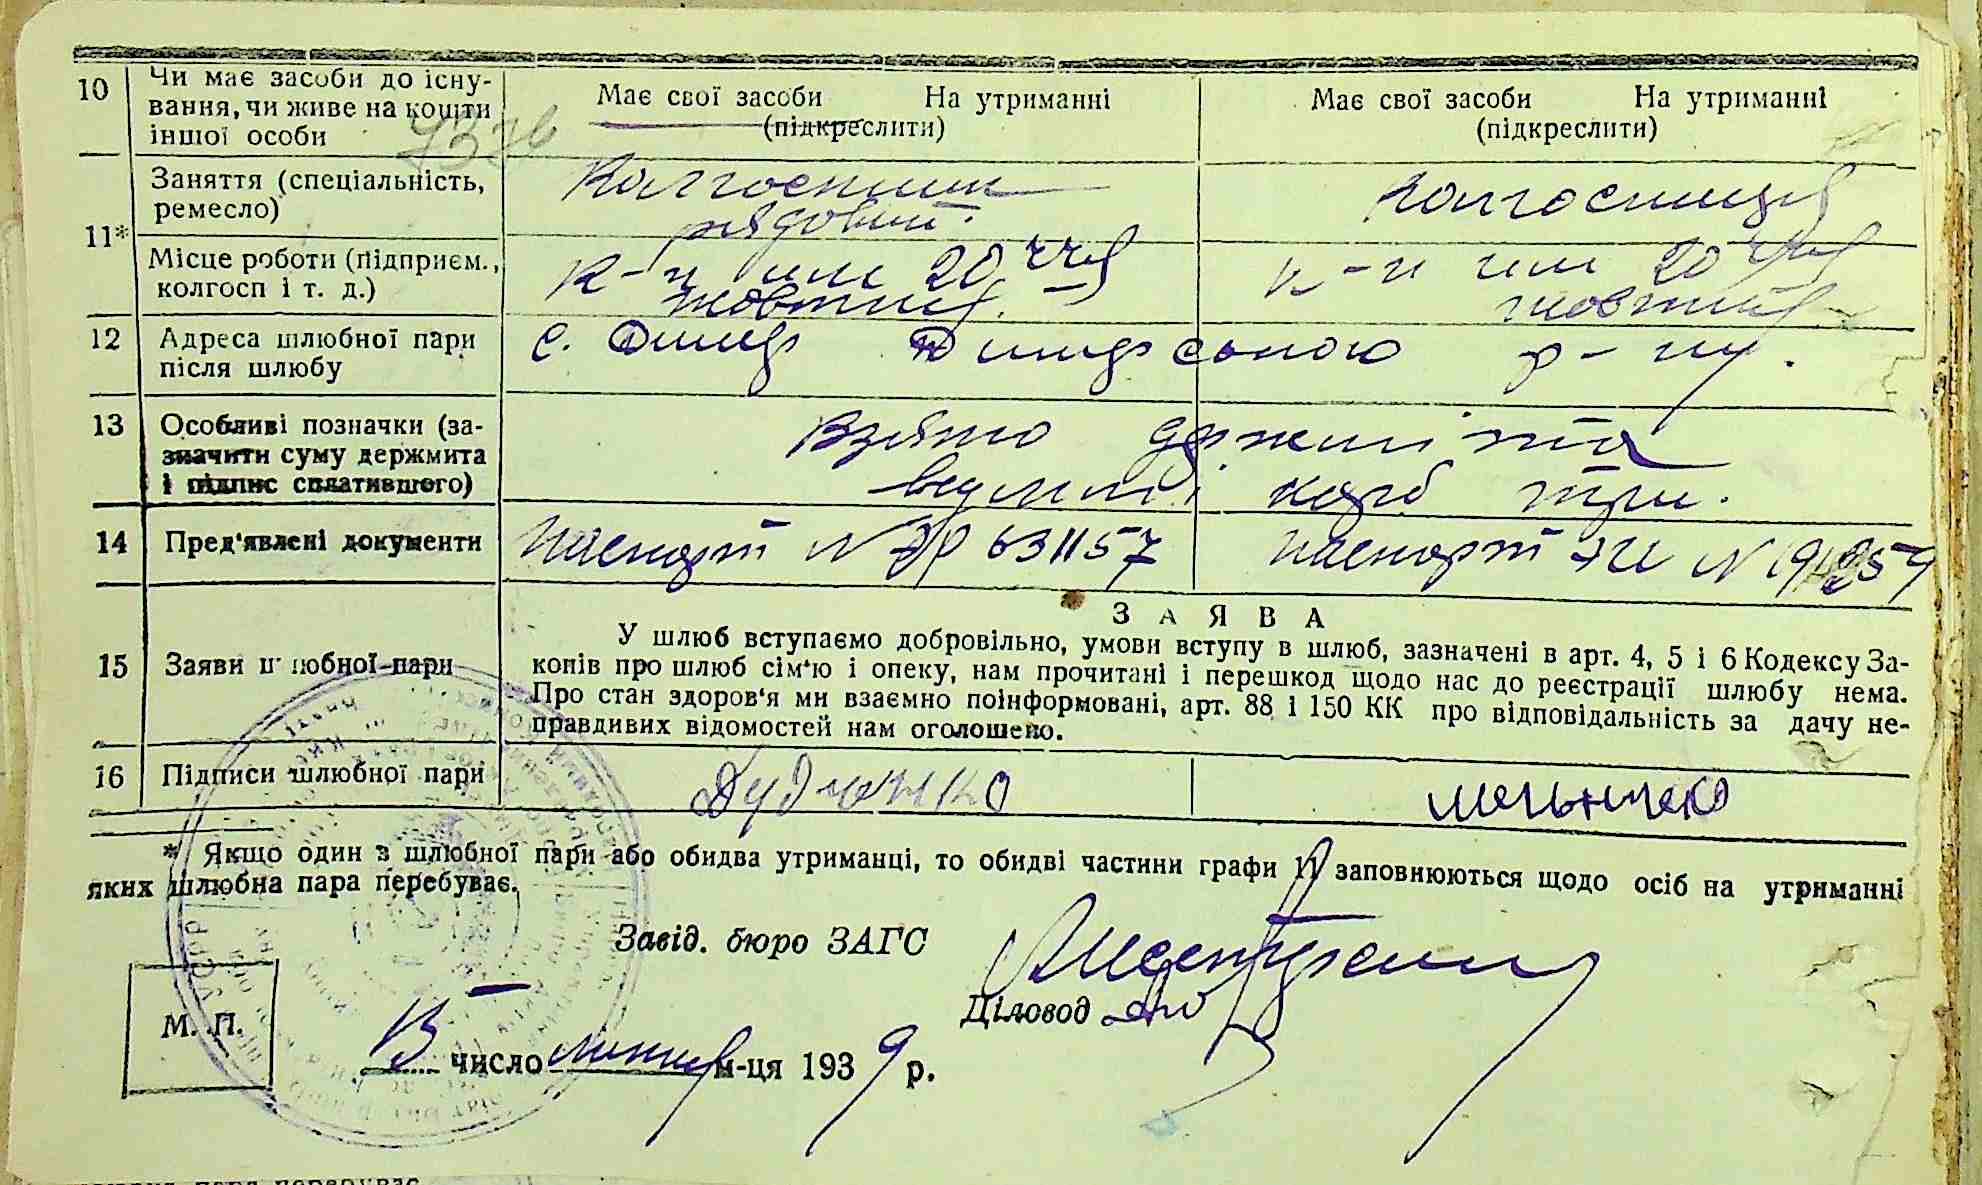 10 Чи має засоби до існу-
вання, чи живе на кошти
іншої особи
Має свої засоби На утриманні
(підкреслити)
Має свої засоби На утриманні
(підкреслити)
11* Заняття (спеціальність,
ремесло)
Колгоспник
рядовий.
Колгоспниця
Місце роботи (підприєм.,
колгосп і т. д.)
к-п им 20
жовтня
к-п им 20
жовтня
12 Адреса шлюбної пари
після шлюбу
с. Димер Димерського р-ну.
13 Особливі позначки (за-
значити суму держмита
і підпис сплатившого)
Взято держмита
карб три.
14 Пред'явлені документи
Паспорт N ЭР 631157
Паспорт ЭИ N
15 Заяви шлюбної пари
ЗАЯВА
У шлюб вступаємо добровільно, умови вступу в шлюб, зазначені в арт. 4, 5 і 6 Кодексу За-
конів про шлюб сім'ю і опеку, нам прочитані і перешкод щодо нас до реєстрації шлюбу нема.
Про стан здоров'я ми взаємно поінформовані, арт. 88 і 150 КК про відповідальність за дачу не-
правдивих відомостей нам оголошено.
16 Підписи шлюбної пари
Дудченко
* Якщо один з шлюбної пари або обидва утриманці, то обидві частини графи 11 заповнюються щодо осіб на утриманні
яких шлюбна пара перебуває.
Завід. бюро ЗАГС
Діловод
М. П.
число липня м-ця 1939 р.